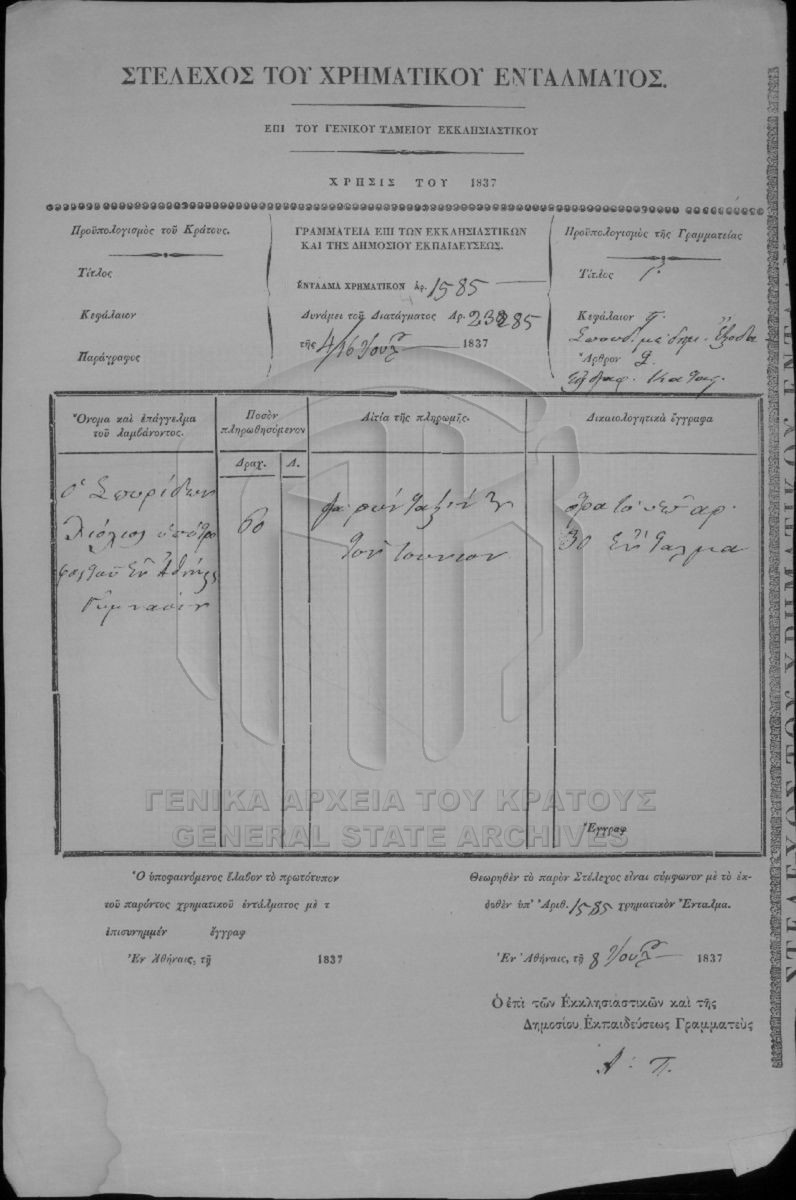 ΣΤΕΛΕΧΟΣ ΤΟΥ ΧΡΗΜΑΤΙΚΟΥ ΕΝΤΑΛΜΑΤΟΣ.
ΕΠΙ ΤΟΥ ΓΕΝΙΚΟΥ ΤΑΜΕΙΟΥ ΕΚΚΛΗΣΙΑΣΤΙΚΟΥ
ΧΡΗΣΙΣ ΤΟΥ 1837
Προϋπολογισμὸς τοῦ Κράτους.
Τίτλος
Κεφάλαιον
Παράγραφος
ΓΡΑΜΜΑΤΕΙΑ ΕΠΙ ΤΩΝ ΕΚΚΛΗΣΙΑΣΤΙΚΩΝ
ΚΑΙ ΤΗΣ ΔΗΜΟΣΙΟΥ ΕΚΠΑΙΔΕΥΣΕΩΣ.
ΕΝΤΑΛΜΑ ΧΡΗΜΑΤΙΚΟΝ ἀρ. 1585
Δυνάμει τοῦ Διατάγματος Αρ.
τῆς 4/16 1837
Προϋπολογισμὸς τῆς Γραμματείας
Τίτλος
Κεφάλαιον
Ἄρθρον
Ὄνομα καὶ ἐπάγγελμα
τοῦ λαμβάνοντος.
Ποσὸν
πληρωθησόμενον
Δραχ. Λ.
Αἰτία τῆς πληρωμῆς.
Δικαιολογητικὰ ἔγγραφα
ὁ Σπυρίδων
ὑπότρο
φος τοῦ ἐν Ἀθήναις
Γυμνασίου
60
τὸν Ἰούνιον
ὑπ' ἀρ.
30 ἔνταλμα
Ἔγγραφ
ΓΕΝΙΚΑ ΑΡΧΕΙΑ ΤΟΥ ΚΡΑΤΟΥΣ
GENERAL STATE ARCHIVES
Ὁ ὑποφαινόμενος ἔλαβον τὸ πρωτότυπον
τοῦ παρόντος χρηματικοῦ ἐντάλματος μὲ τ
ἐπισυνημμέν ἔγγραφ
Ἐν Ἀθήναις, τῇ 1837
Θεωρηθὲν τὸ παρὸν Στέλεχος εἶναι σύμφωνον μὲ τὸ ἐκ-
δοθὲν ὑπ' Ἀριθ. 1585 χρηματικὸν Ἔνταλμα.
Ἐν Ἀθήναις, τῇ 8 1837
Ὁ ἐπὶ τῶν Ἐκκλησιαστικῶν καὶ τῆς
Δημοσίου Ἐκπαιδεύσεως Γραμματεὺς
Α. Π.
ΣΤΕΛΕΧΟΣ ΤΟΥ ΧΡΗΜΑΤΙΚΟΥ ΕΝΤΑΛΜΑ